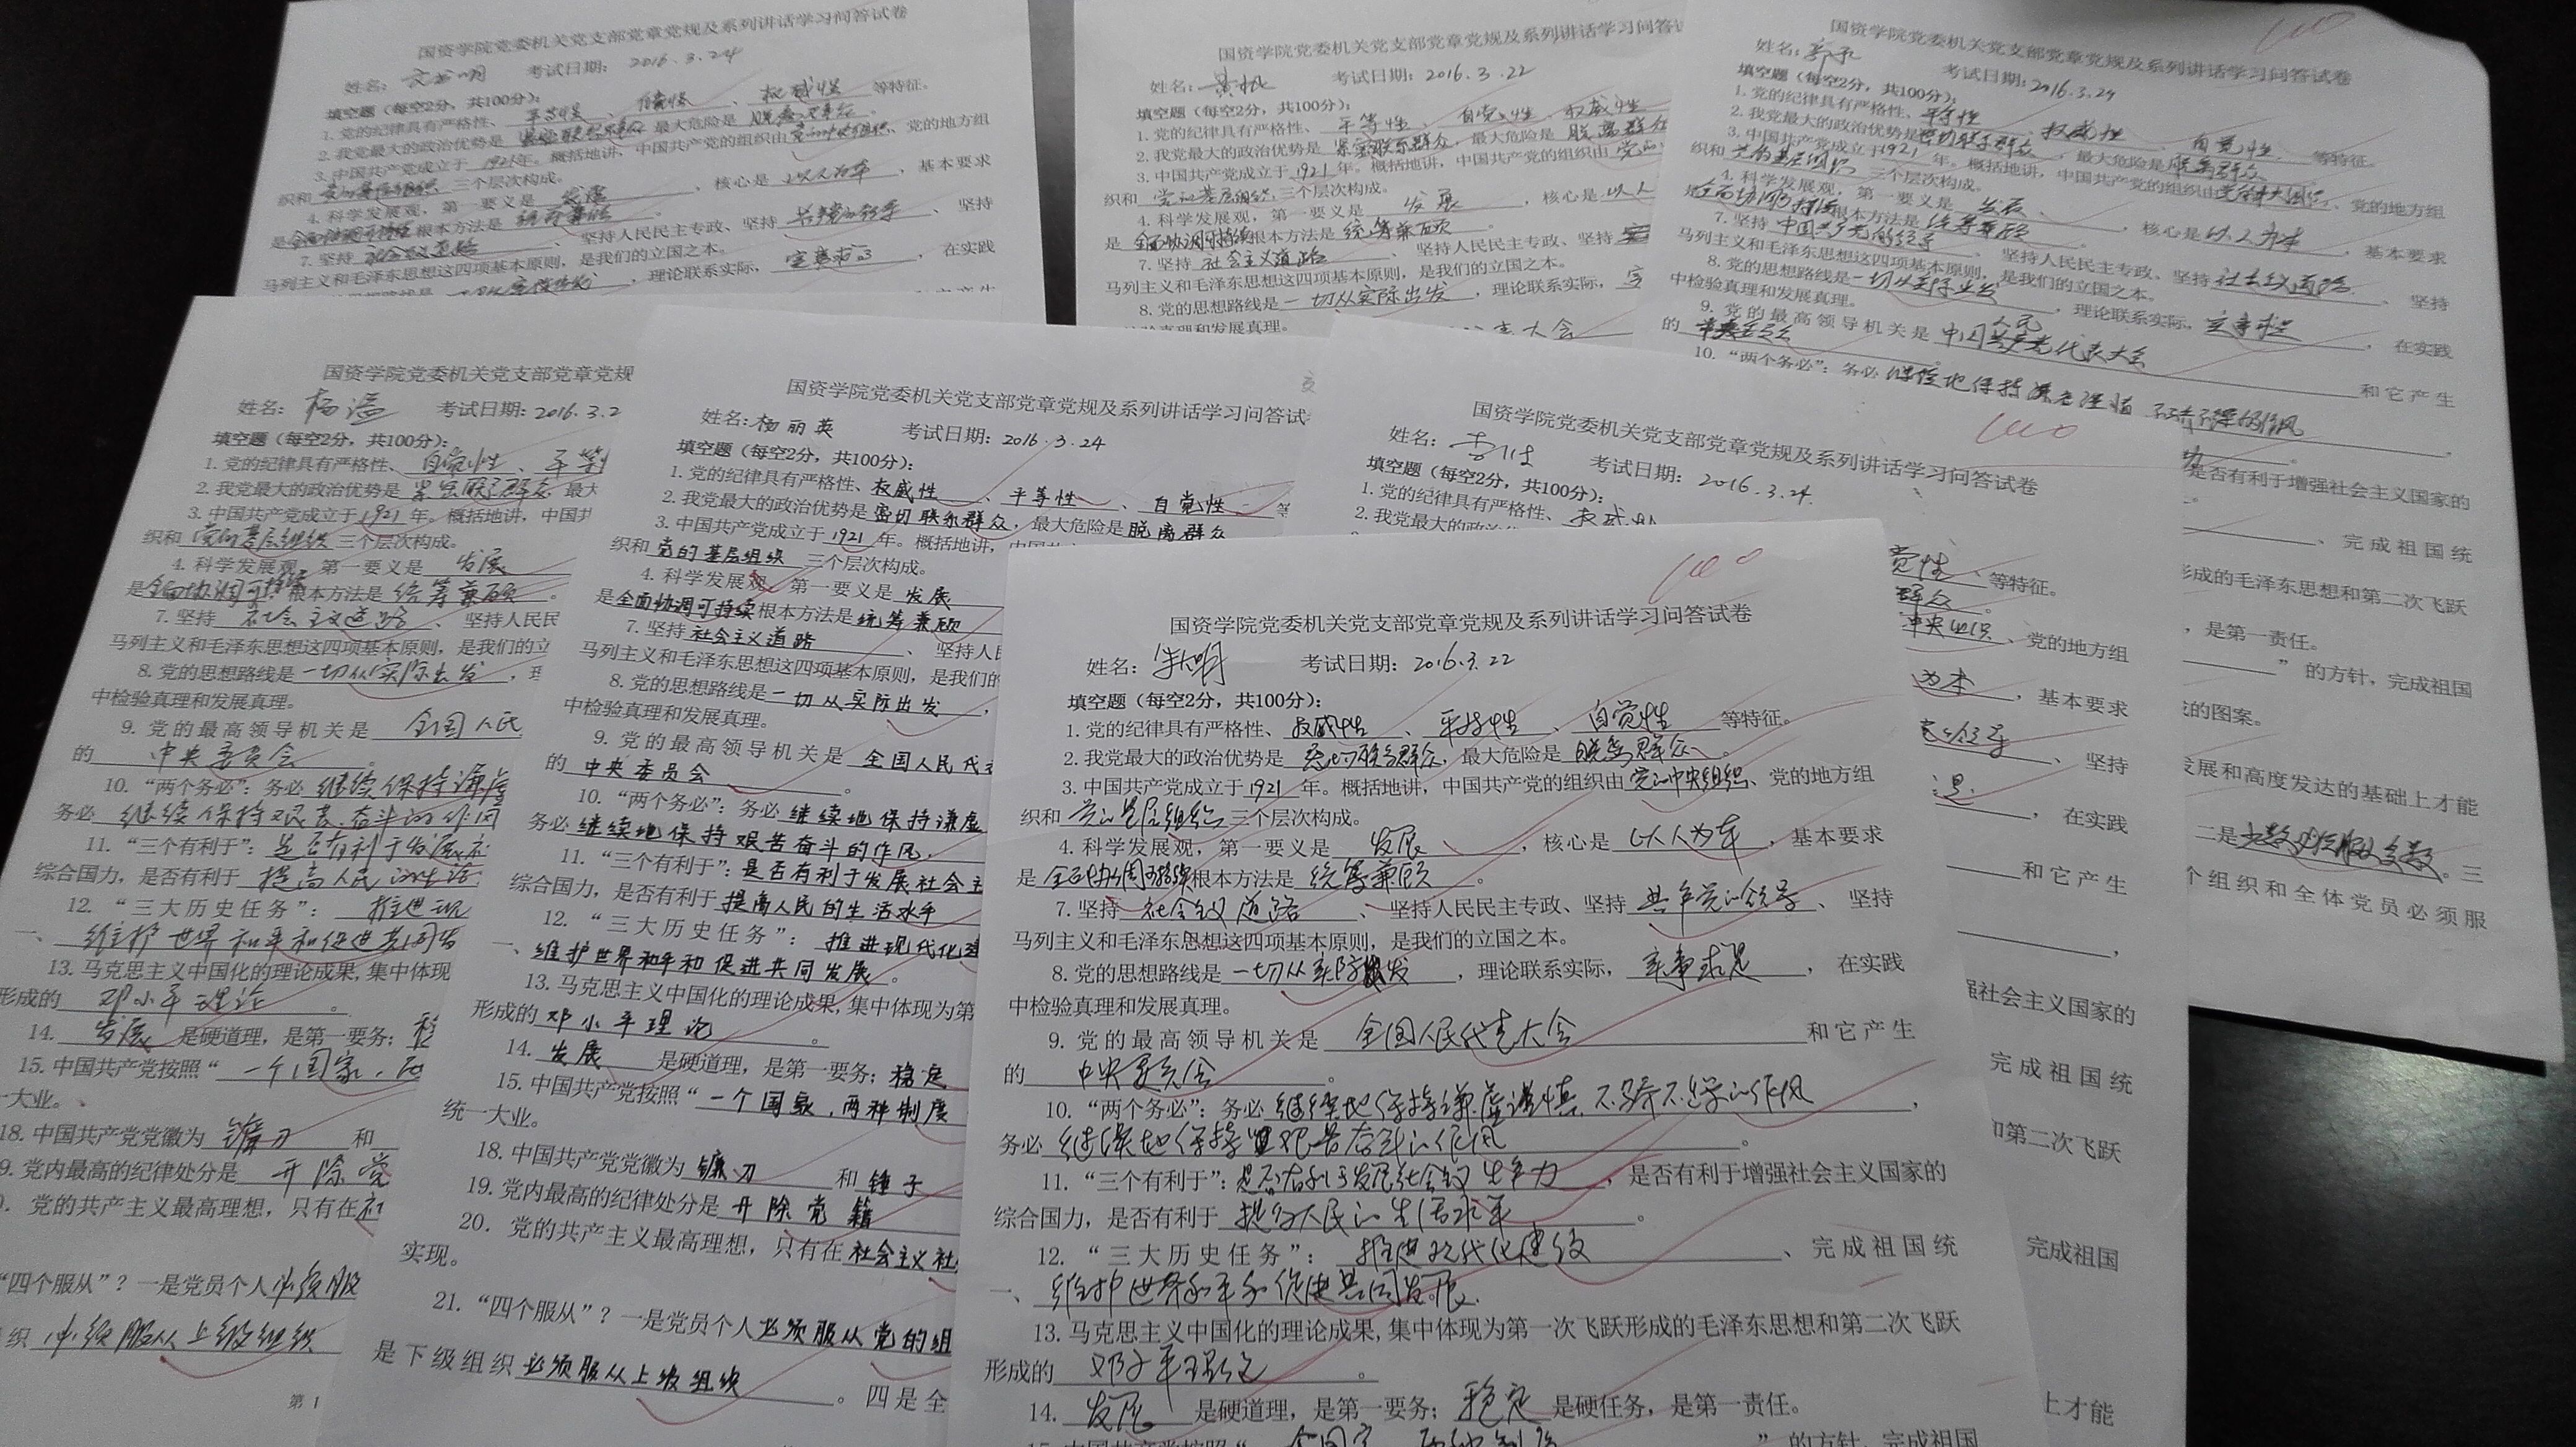 国资学院党委机关党支部党章党规及系列讲话学习问答试卷
考试日期： 2016.3.24
填空题（每空2分，共100分）：
1. 党的纪律具有严格性、 平等性 、 自觉性 、 权威性 等特征。
2. 我党最大的政治优势是 最大危险是
3. 中国共产党成立于 1921年。概括地讲，中国共产党的组织由 、党的地方组
织和 三个层次构成。
4. 科学发展观，第一要义是 发展 ，核心是 以人为本 ，基本要求
是全面协调可持续根本方法是 统筹兼顾 。
7. 坚持 社会主义道路 、坚持人民民主专政、坚持 、坚持
马列主义和毛泽东思想这四项基本原则，是我们的立国之本。
，理论联系实际， 实事求是 ，在实践
国资学院党委机关党支部党章党规及系列讲话学习问答试
姓名： 黄帆 考试日期：2016.3.22
填空题（每空2分，共100分）：
1. 党的纪律具有严格性、 平等性 、 自觉性 、权威性
2. 我党最大的政治优势是 密切联系群众 ，最大危险是 脱离群众
3. 中国共产党成立于 1921 年。概括地讲，中国共产党的组织由
织和 党的基层组织 三个层次构成。
4. 科学发展观，第一要义是 发展 ，核心是 以人
是 全面协调可持续根本方法是 统筹兼顾 。
7. 坚持 社会主义道路 、坚持人民民主专政、坚持
马列主义和毛泽东思想这四项基本原则，是我们的立国之本。
8. 党的思想路线是一 切从实际出发 ，理论联系实际，
100
国资学院党委机关党支部党章党规及系列讲话学习问答试卷
姓名： 考试日期：2016.3.24
填空题（每空2分，共100分）：
1. 党的纪律具有严格性、 平等性 、 权威性 、 自觉性 等特征。
2. 我党最大的政治优势是密切联系群众 ，最大危险是脱离群众
3. 中国共产党成立于1921 年。概括地讲，中国共产党的组织由 、党的地方组
织和 党的基层组织 三个层次构成。
4. 科学发展观，第一要义是 发展 ，核心是以人为本 ，基本要求
是全面协调可持续根本方法是 统筹兼顾 。
7. 坚持 中国共产党的领导 、坚持人民民主专政、坚持 社会主义道路 、坚持
马列主义和毛泽东思想这四项基本原则，是我们的立国之本。
8. 党的思想路线是一切从实际出发 ，理论联系实际， 实事求是 ，在实践
中检验真理和发展真理。
9. 党的最高领导机关是 和它产生
的 中央委员会
10. “两个务必”：务必
是否有利于增强社会主义国家的
、完成祖国统
形成的毛泽东思想和第二次飞跃
，是第一责任。
” 的方针，完成祖国
的图案。
发展和高度发达的基础上才能
二是少数必须服从多数。三
个组织和全体党员必须服
国资学院党委机关党支部党章党规
姓名： 杨溢 考试日期：2016.3.2
填空题（每空2分，共100分）：
1. 党的纪律具有严格性、 自觉性 、平等
2. 我党最大的政治优势是 紧密联系群众 最大
3. 中国共产党成立于 1921 年。概括地讲，中国共
织和 党的基层组织 三个层次构成。
4. 科学发展观，第一要义是 发展
是全面协调可持续根本方法是 统筹兼顾 。
7. 坚持 社会主义道路 、坚持人民民
马列主义和毛泽东思想这四项基本原则，是我们的立
8. 党的思想路线是一切从实际出发 ，理
中检验真理和发展真理。
9. 党的最高领导机关是 全国人民
的 中央委员会 。
10. “两个务必”：务必 继续保持谦虚
务必 继续保持艰苦奋斗的作风
11. “三个有利于”：是否有利于发展社
综合国力，是否有利于 提高人民的生活
12. “三大历史任务”： 推进现
一、 维护世界和平和促进共同发
13. 马克思主义中国化的理论成果,集中体现
形成的 邓小平理论 。
14. 发展 是硬道理，是第一要务；稳
15. 中国共产党按照“ 一个国家，两
一大业。
18. 中国共产党党徽为 镰刀 和
9. 党内最高的纪律处分是 开除党
. 党的共产主义最高理想，只有在社
“四个服从”？一是党员个人必须服
织 必须服从上级组织
第 1
国资学院党委机关党支部党章党规及系列讲话学习问答试
姓名：杨丽英 考试日期：2016.3.24
填空题（每空2分，共100分）：
1. 党的纪律具有严格性、权威性 、 平等性 、 自觉性 等
2. 我党最大的政治优势是密切联系群众，最大危险是脱离群众
3. 中国共产党成立于 1921 年。概括地讲，
织和 党的基层组织 三个层次构成。
4. 科学发展观，第一要义是 发展
是全面协调可持续根本方法是统筹兼顾
7. 坚持 社会主义道路 、坚持人民
马列主义和毛泽东思想这四项基本原则，是我们的
8. 党的思想路线是一切从实际出发 ，
中检验真理和发展真理。
9. 党的最高领导机关是 全国人民代表
的 中央委员会 。
10. “两个务必”：务必 继续地保持谦虚
务必 继续地保持艰苦奋斗的作风.
11. “三个有利于”：是否有利于发展社会主
综合国力，是否有利于 提高人民的生活水平
12. “三大历史任务”： 推进现代化建
一、维护世界和平和促进共同发展 。
13. 马克思主义中国化的理论成果,集中体现为第
形成的 邓小平理论 。
14. 发展 是硬道理，是第一要务；稳定
15. 中国共产党按照“ 一个国家，两种制度
统一大业。
18. 中国共产党党徽为 镰刀 和 锤子
19. 党内最高的纪律处分是 开除党籍
20. 党的共产主义最高理想，只有在 社会主义社
实现。
21. “四个服从”？一是党员个人必须服从党的组
是下级组织 必须服从上级组织 。四是全
100
国资学院党委机关党支部党章党规及系列讲话学习问答试卷
姓名： 考试日期：2016.3.24.
填空题（每空2分，共100分）：
1. 党的纪律具有严格性、 权威性
觉性 等特征。
群众 。
中央组织 、党的地方组
为本 ，基本要求
、坚持
是 ，在实践
和它产生
强社会主义国家的
完成祖国统
和第二次飞跃
完成祖国
上才能
100
国资学院党委机关党支部党章党规及系列讲话学习问答试卷
姓名： 考试日期： 2016.3.22
填空题（每空2分，共100分）：
1. 党的纪律具有严格性、 权威性 、 平等性 、 自觉性 等特征。
2. 我党最大的政治优势是 密切联系群众，最大危险是 脱离群众 。
3. 中国共产党成立于 1921 年。概括地讲，中国共产党的组织由 党的中央组织、党的地方组
织和 党的基层组织 三个层次构成。
4. 科学发展观，第一要义是 发展 ，核心是 以人为本 ，基本要求
是 全面协调可持续根本方法是 统筹兼顾 。
7. 坚持 社会主义道路 、坚持人民民主专政、坚持 共产党的领导 、坚持
马列主义和毛泽东思想这四项基本原则，是我们的立国之本。
8. 党的思想路线是一切从实际出发 ，理论联系实际， 实事求是 ，在实践
中检验真理和发展真理。
9. 党的最高领导机关是 全国人民代表大会 和它产生
的 中央委员会 。
10. “两个务必”：务必 继续地保持谦虚谨慎、不骄不躁的作风 ，
务必 继续地保持艰苦奋斗的作风 。
11. “三个有利于”：是否有利于发展社会主义生产力 ，是否有利于增强社会主义国家的
综合国力，是否有利于 提高人民的生活水平 。
12. “三大历史任务”： 推进现代化建设 、完成祖国统
一、 维护世界和平和促进共同发展.
13. 马克思主义中国化的理论成果,集中体现为第一次飞跃形成的毛泽东思想和第二次飞跃
形成的 邓小平理论 。
14. 发展 是硬道理，是第一要务； 稳定 是硬任务，是第一责任。
” 的方针，完成祖国